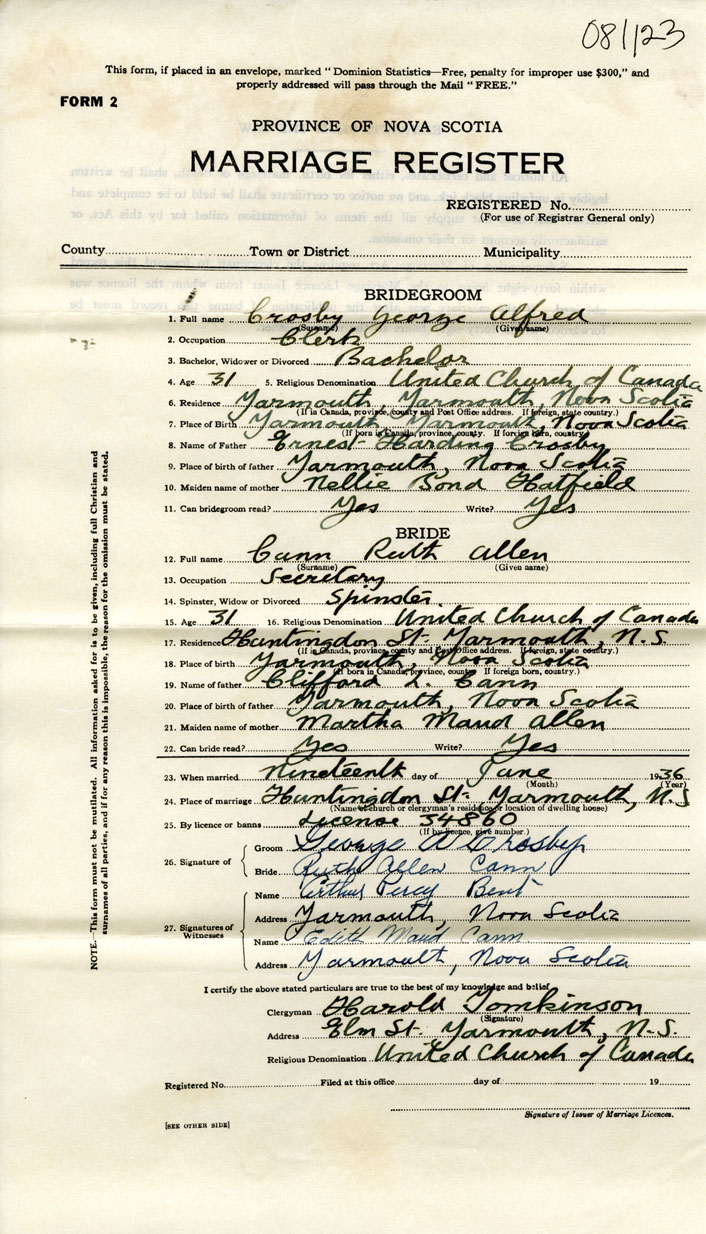 081123
This form, if placed in an envelope, marked "Dominion Statistics—Free, penalty for improper use $300," and
properly addressed will pass through the Mail "FREE."
FORM 2
PROVINCE OF NOVA SCOTIA
MARRIAGE REGISTER
REGISTERED No.
(For use of Registrar General only)
County Town or District Municipality
BRIDEGROOM
1. Full name Crosby George Alfred
(Surname) (Given name)
2. Occupation Clerk
3. Bachelor, Widower or Divorced Bachelor
4. Age 31 5. Religious Denomination United Church of Canada
6. Residence Yarmouth, Yarmouth, Nova Scotia
(If in Canada, province, county and Post Office address. If foreign, state country.)
7. Place of Birth Yarmouth, Yarmouth, Nova Scotia
(If born in Canada, province, county. If foreign born, country.)
8. Name of Father Ernest Harding Crosby
9. Place of birth of father Yarmouth, Nova Scotia
10. Maiden name of mother Nellie Bond Hatfield
11. Can bridegroom read? Yes Write? Yes
BRIDE
12. Full name Cann Ruth Allen
(Surname) (Given name)
13. Occupation Secretary
14. Spinster, Widow or Divorced Spinster.
15. Age 31 16. Religious Denomination United Church of Canada
17. Residence Huntingdon St. Yarmouth, N.S.
(If in Canada, province, county and Post Office address. If foreign, state country.)
18. Place of birth Yarmouth, Nova Scotia
(If born in Canada, province, county. If foreign born, country.)
19. Name of father Clifford L. Cann
20. Place of birth of father Yarmouth, Nova Scotia
21. Maiden name of mother Martha Maud Allen
22. Can bride read? Yes Write? Yes
23. When married Nineteenth day of June 1936
(Month) (Year)
24. Place of marriage Huntingdon St. Yarmouth, N.S
(Name of church or clergyman's residence or location of dwelling house)
25. By licence or banns License 34860
(If by licence, give number.)
26. Signature of
Groom George A Crosby
Bride Ruth Allen Cann
27. Signatures of Witnesses
Name Arthur Percy Bent
Address Yarmouth, Nova Scotia
Name Edith Maud Cann
Address Yarmouth, Nova Scotia
I certify the above stated particulars are true to the best of my knowledge and belief
Clergyman Harold Tomkinson
(Signature)
Address Elm St. Yarmouth, N.S.
Religious Denomination United Church of Canada
Registered No. Filed at this office day of 19
Signature of Issuer of Marriage Licences.
[SEE OTHER SIDE]
NOTE.—This form must not be mutilated. All information asked for is to be given, including full Christian and
surnames of all parties, and if for any reason this is impossible, the reason for the omission must be stated.